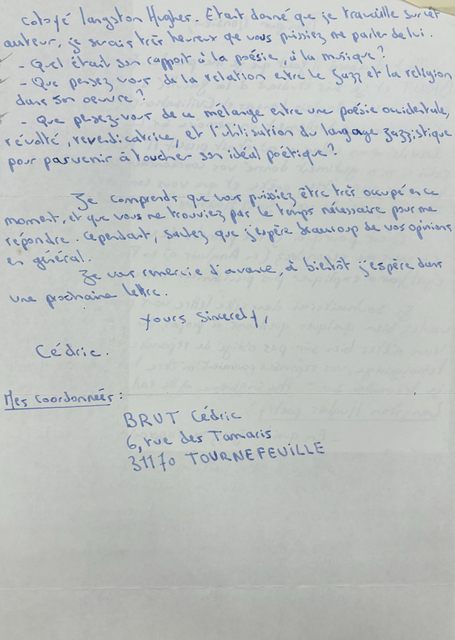 côtoyé Langston Hughes. Etant donné que je travaille sur cet
auteur, je serais très heureux que vous puissiez me parler de lui.
- Quel était son rapport à la poésie, à la musique ?
- Que pensez vous de la relation entre le jazz et la religion
dans son oeuvre ?
- Que pensez-vous de ce mélange entre une poésie occidentale,
révolté, revendicatrice, et l'utilisation du langage jazzistique
pour parvenir à toucher son idéal poétique ?
Je comprends que vous puissiez être très occupé en ce
moment, et que vous ne trouviez pas le temps nécessaire pour me
répondre. Cependant, sachez que j'espère beaucoup de vos opinions
en général.
Je vous remercie d'avance, à bientôt j'espère dans
une prochaine lettre.
Yours Sincerely,
Cédric.
Mes coordonnées :
BRUT Cédric
6, rue des Tamaris
31170 TOURNEFEUILLE